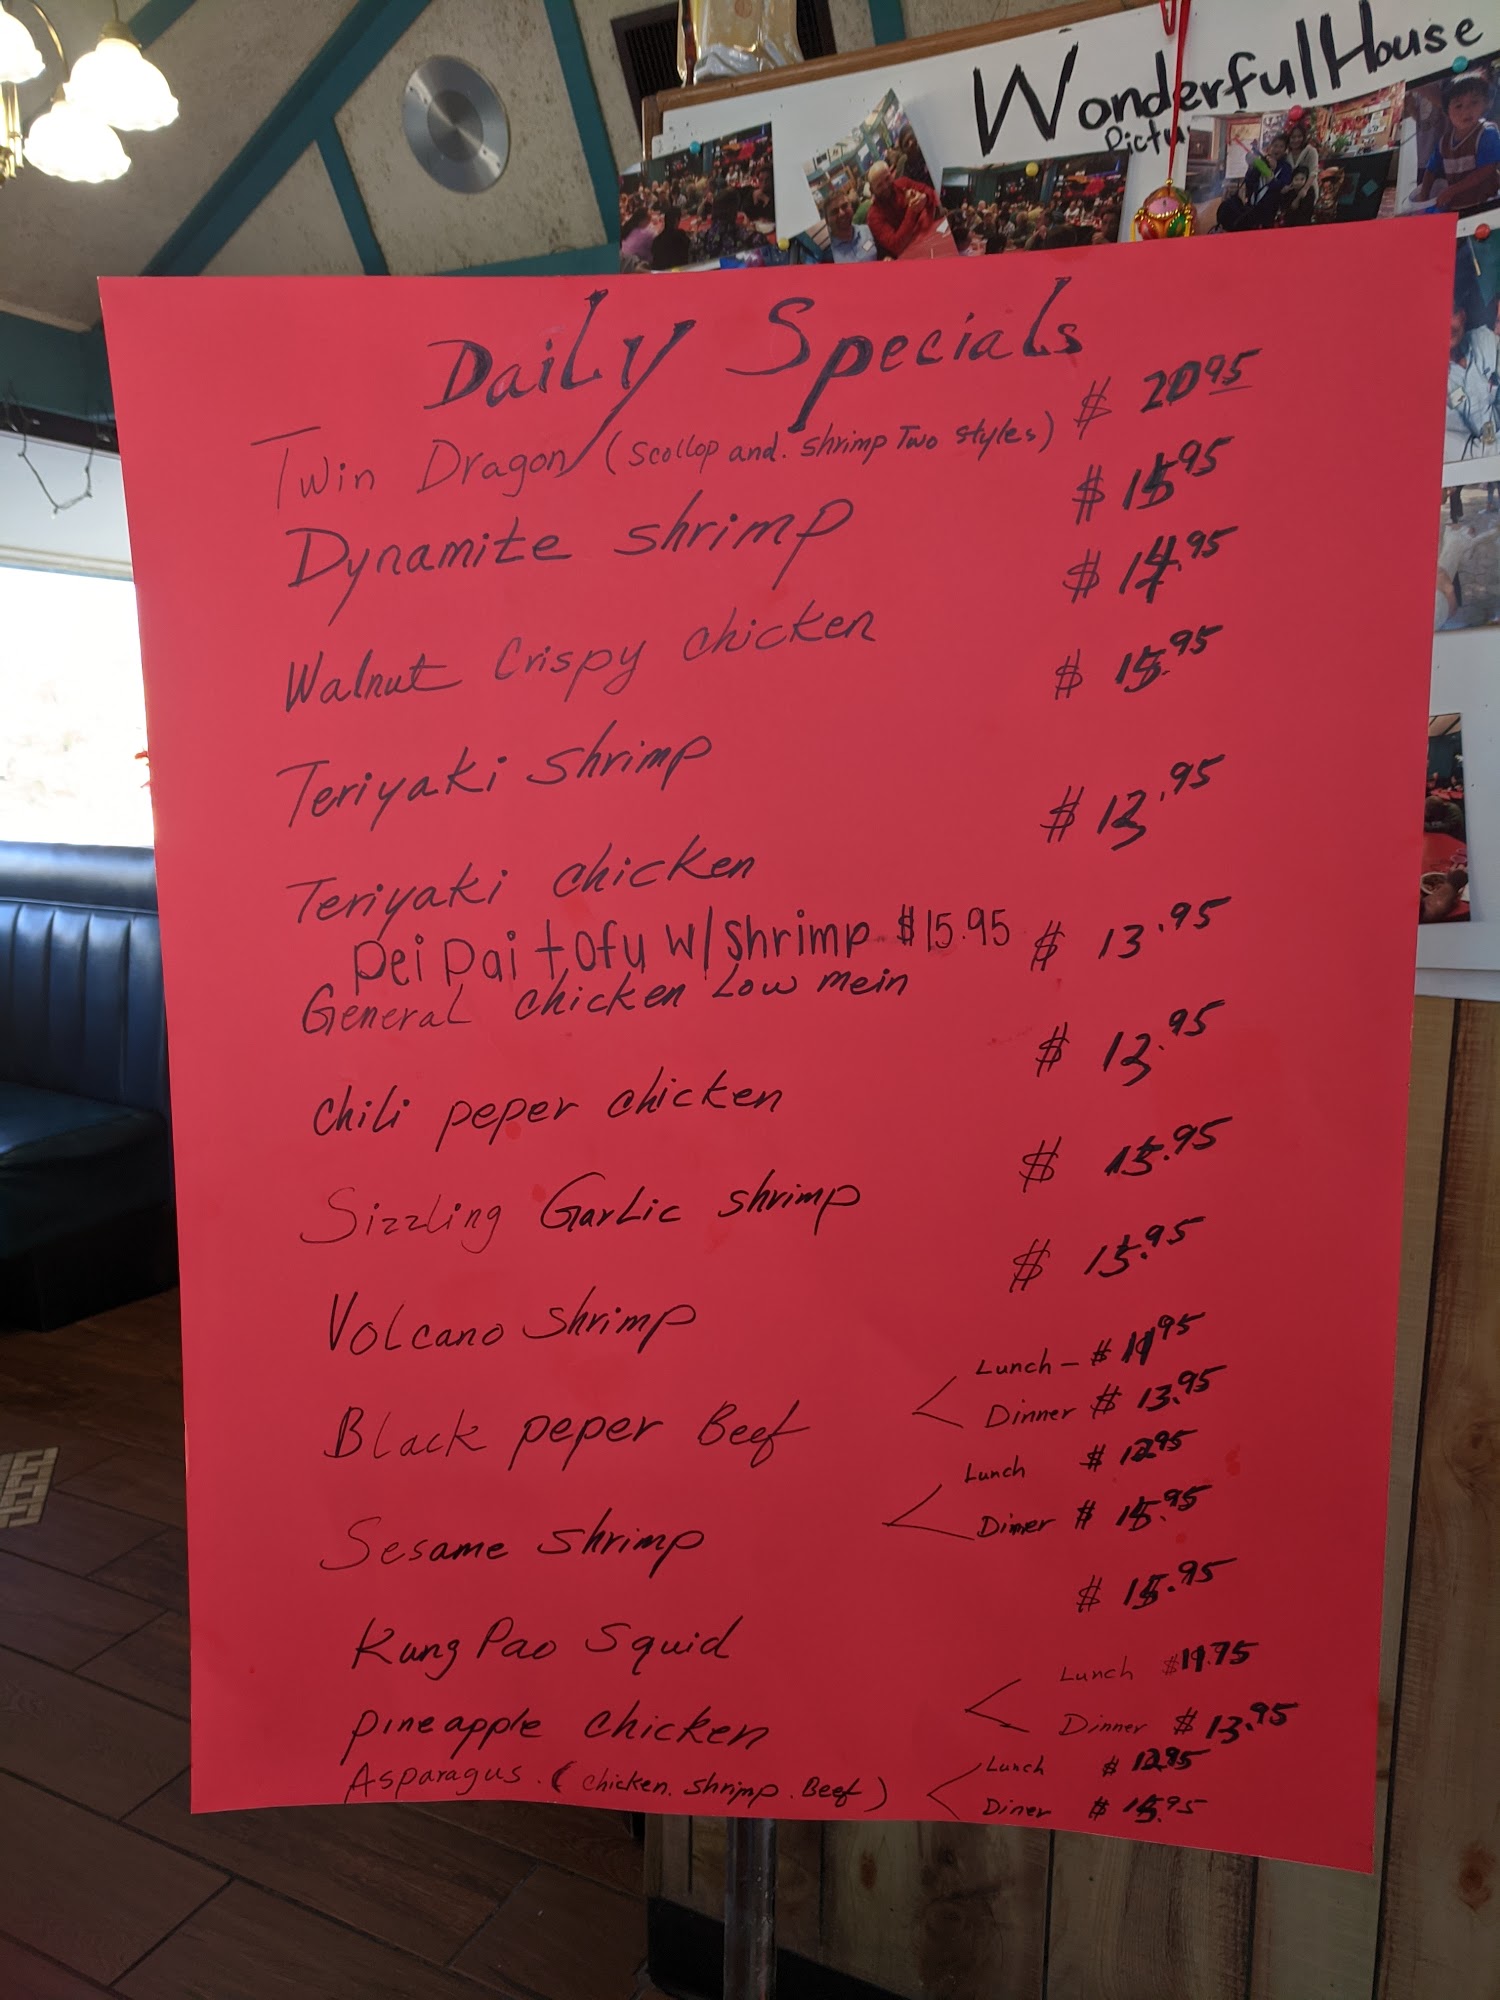 WonderfulHouse
Daily Specials
Twin Dragon (Scollop and. shrimp Two styles) $ 20.95
Dynamite shrimp $ 15.95
Walnut Crispy chicken $ 14.95
Teriyaki shrimp $ 15.95
Teriyaki chicken $ 13.95
Pei pai tofu w/shrimp $15.95
General chicken Low mein $ 13.95
Chili peper chicken $ 13.95
Sizzling Garlic shrimp $ 15.95
Volcano shrimp $ 15.95
Black peper Beef Lunch - $ 11.95
Dinner $ 13.95
Sesame shrimp Lunch $ 12.95
Dinner $ 15.95
Kung Pao Squid $ 15.95
Pineapple chicken Lunch $11.75
Dinner $ 13.95
Asparagus. (chicken. shrimp. Beef) Lunch $ 12.95
Diner $ 15.95